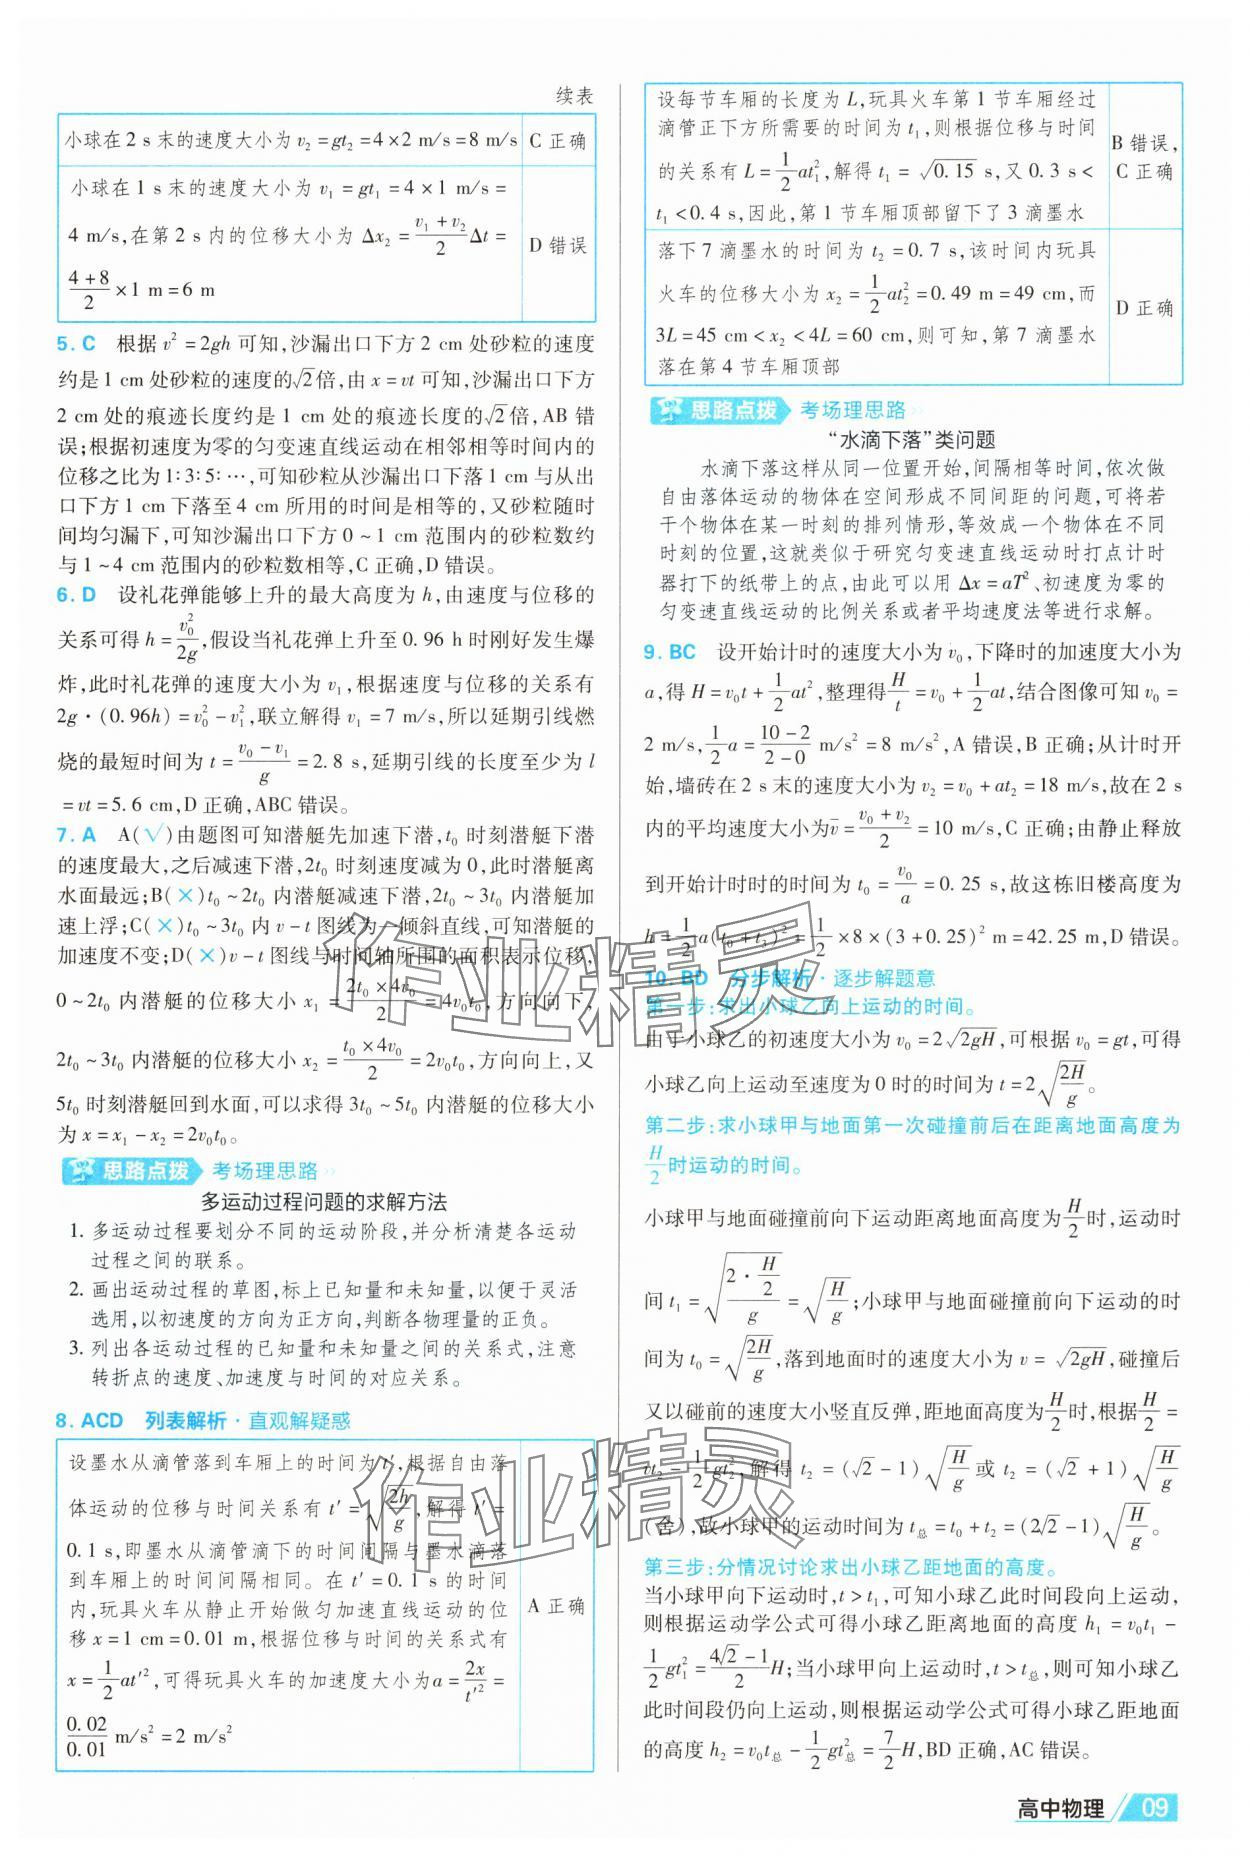 续表
小球在 2 s 末的速度大小为 v₂=gt₂=4×2 m/s=8 m/s C 正确
小球在 1 s 末的速度大小为 v₁=gt₁=4×1 m/s=
4 m/s,在第 2 s 内的位移大小为 Δx₂=\frac{v₁+v₂}{2}Δt=
\frac{4+8}{2}×1 m=6 m
D 错误
5. C 根据 v²=2gh 可知,沙漏出口下方 2 cm 处砂粒的速度
约是 1 cm 处砂粒的速度的√2倍,由 x=vt 可知,沙漏出口下方
2 cm 处的痕迹长度约是 1 cm 处的痕迹长度的√2倍,AB 错
误;根据初速度为零的匀变速直线运动在相邻相等时间内的
位移之比为 1:3:5:⋯,可知砂粒从沙漏出口下落 1 cm 与从出
口下方 1 cm 下落至 4 cm 所用的时间是相等的,又砂粒随时
间均匀漏下,可知沙漏出口下方 0~1 cm 范围内的砂粒数约
与 1~4 cm 范围内的砂粒数相等,C 正确,D 错误。
6. D 设礼花弹能够上升的最大高度为 h,由速度与位移的
关系可得 h=\frac{v₀²}{2g},假设当礼花弹上升至 0.96 h 时刚好发生爆
炸,此时礼花弹的速度大小为 v₁,根据速度与位移的关系有
2g·(0.96h)=v₀²-v₁²,联立解得 v₁=7 m/s,所以延期引线燃
烧的最短时间为 t=\frac{v₀-v₁}{g}=2.8 s,延期引线的长度至少为 l
=vt=5.6 cm,D 正确,ABC 错误。
7. A A(√)由题图可知潜艇先加速下潜,t₀ 时刻潜艇下潜
的速度最大,之后减速下潜,2t₀ 时刻速度减为 0,此时潜艇离
水面最远;B(×)t₀~2t₀ 内潜艇减速下潜,2t₀~3t₀ 内潜艇加
速上浮;C(×)t₀~3t₀ 内 v-t 图线为一倾斜直线,可知潜艇的
加速度不变;D(×)v-t 图线与时间轴所围的面积表示位移,
0~2t₀ 内潜艇的位移大小 x₁=\frac{2t₀×4v₀}{2}=4v₀t₀,方向向下,
2t₀~3t₀ 内潜艇的位移大小 x₂=\frac{t₀×4v₀}{2}=2v₀t₀,方向向上,又
5t₀ 时刻潜艇回到水面,可以求得 3t₀~5t₀ 内潜艇的位移大小
为 x=x₁-x₂=2v₀t₀。
思路点拨 考场理思路
多运动过程问题的求解方法
1. 多运动过程要划分不同的运动阶段,并分析清楚各运动
过程之间的联系。
2. 画出运动过程的草图,标上已知量和未知量,以便于灵活
选用,以初速度的方向为正方向,判断各物理量的正负。
3. 列出各运动过程的已知量和未知量之间的关系式,注意
转折点的速度、加速度与时间的对应关系。
8. ACD 列表解析·直观解疑惑
设墨水从滴管落到车厢上的时间为 t′,根据自由落
体运动的位移与时间关系有 t′=\sqrt{\frac{2h}{g}},解得 t′=
0.1 s,即墨水从滴管滴下的时间间隔与墨水滴落
到车厢上的时间间隔相同。在 t′=0.1 s 的时间
内,玩具火车从静止开始做匀加速直线运动的位
移 x=1 cm=0.01 m,根据位移与时间的关系式有
x=\frac{1}{2}at′²,可得玩具火车的加速度大小为a=\frac{2x}{t′²}=
\frac{0.02}{0.01} m/s²=2 m/s²
A 正确
设每节车厢的长度为 L,玩具火车第 1 节车厢经过
滴管正下方所需要的时间为 t₁,则根据位移与时间
的关系有 L=\frac{1}{2}at₁²,解得 t₁=\sqrt{0.15} s,又 0.3 s<
t₁<0.4 s,因此,第 1 节车厢顶部留下了 3 滴墨水
B 错误,
C 正确
落下 7 滴墨水的时间为 t₂=0.7 s,该时间内玩具
火车的位移大小为 x₂=\frac{1}{2}at₂²=0.49 m=49 cm,而
3L=45 cm<x₂<4L=60 cm,则可知,第 7 滴墨水
落在第 4 节车厢顶部
D 正确
思路点拨 考场理思路
“水滴下落”类问题
水滴下落这样从同一位置开始,间隔相等时间,依次做
自由落体运动的物体在空间形成不同间距的问题,可将若
干个物体在某一时刻的排列情形,等效成一个物体在不同
时刻的位置,这就类似于研究匀变速直线运动时打点计时
器打下的纸带上的点,由此可以用 Δx=aT²、初速度为零的
匀变速直线运动的比例关系或者平均速度法等进行求解。
9. BC 设开始计时的速度大小为 v₀,下降时的加速度大小为
a,得 H=v₀t+\frac{1}{2}at²,整理得\frac{H}{t}=v₀+\frac{1}{2}at,结合图像可知 v₀=
2 m/s,\frac{1}{2}a=\frac{10-2}{2-0} m/s²=8 m/s²,A 错误,B 正确;从计时开
始,墙砖在 2 s 末的速度大小为 v₂=v₀+at₂=18 m/s,故在 2 s
内的平均速度大小为\bar{v}=\frac{v₀+v₂}{2}=10 m/s,C 正确;由静止释放
到开始计时时的时间为 t₀=\frac{v₀}{a}=0.25 s,故这栋旧楼高度为
h=\frac{1}{2}a(t₀+t₃)²=\frac{1}{2}×8×(3+0.25)² m=42.25 m,D 错误。
10. BD 分步解析·逐步解题意
第一步:求出小球乙向上运动的时间。
由于小球乙的初速度大小为 v₀=2\sqrt{2gH},可根据 v₀=gt,可得
小球乙向上运动至速度为 0 时的时间为 t=2\sqrt{\frac{2H}{g}}。
第二步:求小球甲与地面第一次碰撞前后在距离地面高度为
\frac{H}{2}时运动的时间。
小球甲与地面碰撞前向下运动距离地面高度为\frac{H}{2}时,运动时
间 t₁=\sqrt{\frac{2·\frac{H}{2}}{g}}=\sqrt{\frac{H}{g}};小球甲与地面碰撞前向下运动的时
间为 t₀=\sqrt{\frac{2H}{g}},落到地面时的速度大小为 v=\sqrt{2gH},碰撞后
又以碰前的速度大小竖直反弹,距地面高度为\frac{H}{2}时,根据\frac{H}{2}=
vt₂-\frac{1}{2}gt₂²,解得 t₂=(√2-1)\sqrt{\frac{H}{g}}或 t₂=(√2+1)\sqrt{\frac{H}{g}}
(舍),故小球甲的运动时间为 t总=t₀+t₂=(2√2-1)\sqrt{\frac{H}{g}}。
第三步:分情况讨论求出小球乙距地面的高度。
当小球甲向下运动时,t>t₁,可知小球乙此时间段向上运动,
则根据运动学公式可得小球乙距离地面的高度 h₁=v₀t₁-
\frac{1}{2}gt₁²=\frac{4√2-1}{2}H;当小球甲向上运动时,t>t总,则可知小球乙
此时间段仍向上运动,则根据运动学公式可得小球乙距地面
的高度 h₂=v₀t总-\frac{1}{2}gt总²=\frac{7}{2}H,BD 正确,AC 错误。
作业精灵
作业精灵
高中物理 09